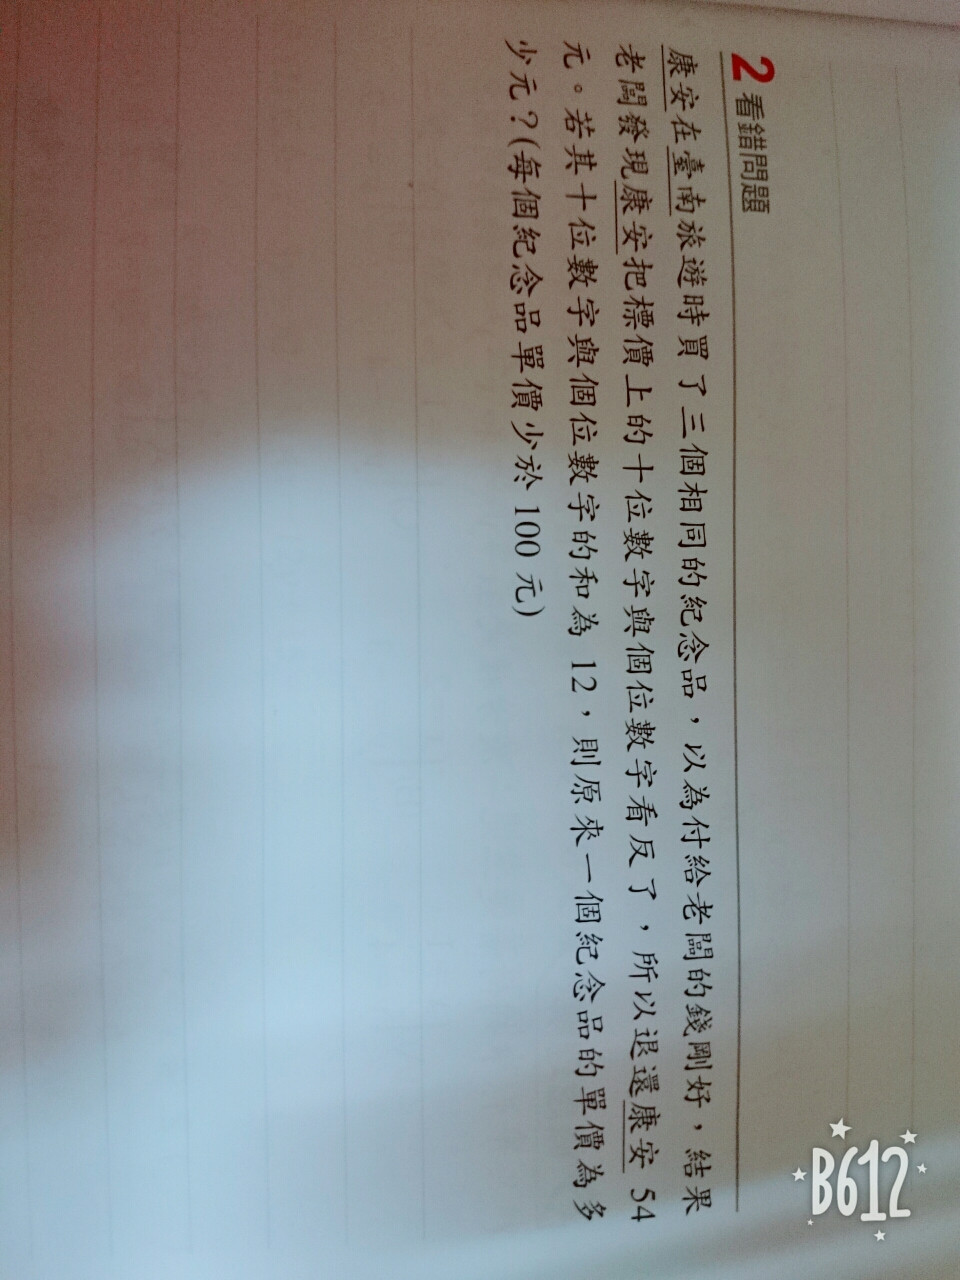 2 看錯問題
康安在臺南旅遊時買了三個相同的紀念品，以為付給老闆的錢剛好，結果
老闆發現康安把標價上的十位數字與個位數字看反了，所以退還康安 54
元。若其十位數字與個位數字的和為 12，則原來一個紀念品的單價為多
少元？(每個紀念品單價少於 100 元)
B612